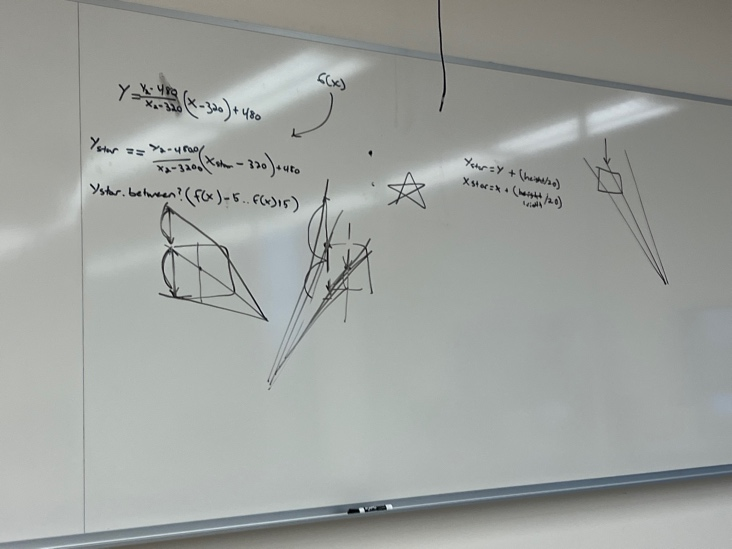 f(x)
Y = Y₂-480/X₂-320 (X-320) + 480
Ystar == Y₂-480/X₂-320 (Xstar - 320) + 480
Ystar.between?(f(x)-5..f(x)+5)
Ystar = Y + (height/2.0)
Xstar = X + (height/2.0)
width